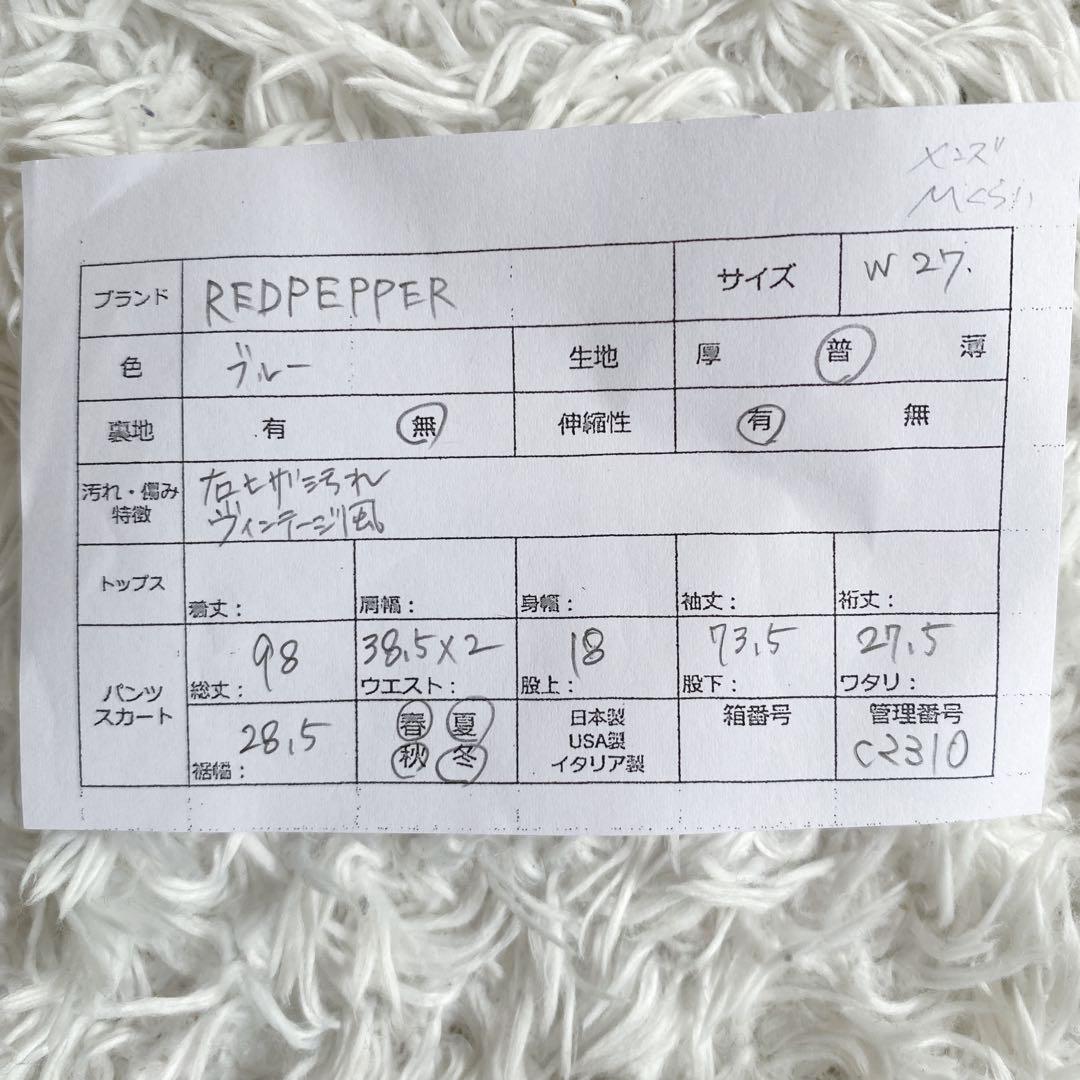 メンズ
Mくらい
ブランド REDPEPPER サイズ W 27.
色 ブルー 生地 厚 普 薄
裏地 有 無 伸縮性 有 無
汚れ・傷み
特徴
右ヒザ汚れ
ヴィンテージ風
トップス 着丈: 肩幅: 身幅: 袖丈: 裄丈:
パンツ
スカート
98 38.5×2 18 73.5 27.5
総丈: ウエスト: 股上: 股下: ワタリ:
28.5
裾幅:
春 夏
秋 冬
日本製
USA製
イタリア製
箱番号
管理番号
C2310